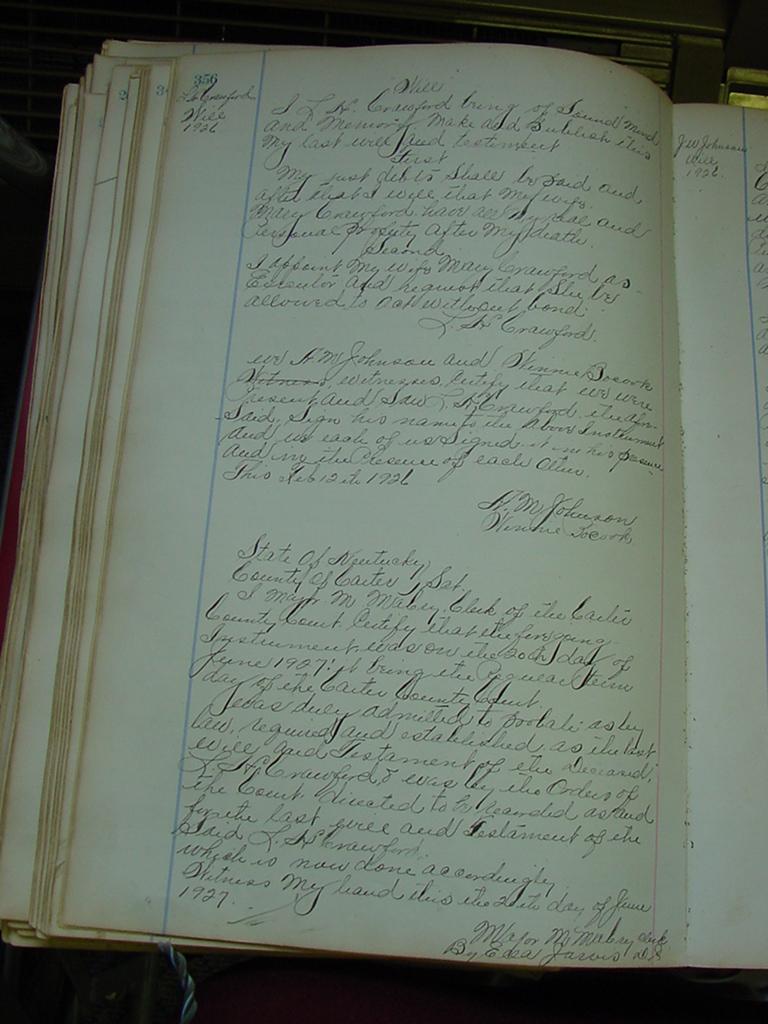 356
L H Crawford
Will
1926
Will
I L. H. Crawford being of Sound Mind
and Memory Make and Publish this
My last will and testiment
First
My just debts Shall be paid and
after that I will that My wife
Mary Crawford have all My real and
Personal Property after My death.
Second
I appoint My wife Mary Crawford as
Executor and request that She be
allowed to act without bond.
L. H. Crawford.
we H M Johnson and Winnie Bocook
Witness, witnesses, Certify that we were
Present and Saw L. H. Crawford the afor-
Said, Sign his name to the above Instrument
and we each of us Signed it in his presence
and in the Presence of each other.
This Feb 12th 1926
H. M. Johnson
Winnie Bocook
State Of Kentucky
County Of Carter Sct.
I Major M Mabry, Clerk of the Carter
County Court Certify that the fore going
Instrument was on the 20th day of
June 1927. it being the regular term
day of the Carter County Court.
was duly admitted to Probate as by
law, required and established, as the last
will and Testament of the Deceased,
L. H. Crawford, & was by the Orders of
the Court directed to be recorded as and
for the last will and Testament of the
Said L. H. Crawford.
which is now done accordingly
Witness My hand this the 20th day of June
1927.
Major M Mabry Clerk
By Edea Jarvis D.C.
J W Johnson
Will
1926.